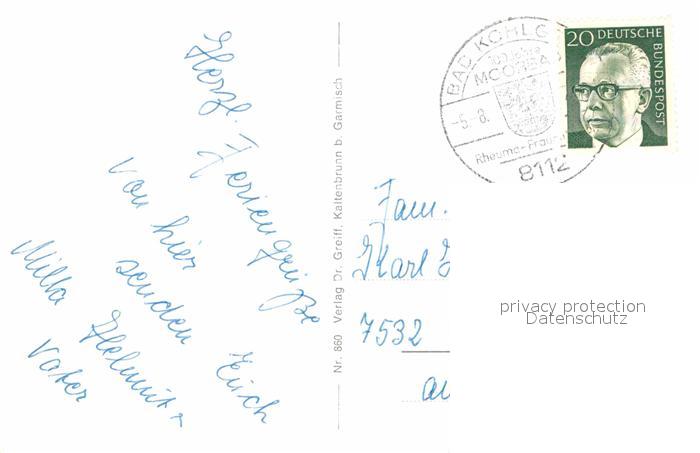 Herzl. Feriengrüße
von hier
senden Euch
Milla Helmut +
Vater
Nr. 860 Verlag Dr. Greiff, Kaltenbrunn b. Garmisch
BAD KOHLG
100 Jahre
MOORBA
-5.-8.
Rheuma-Frau
8112
20 DEUTSCHE
BUNDESPOST
Fam.
Karl
7532
privacy protection
Datenschutz